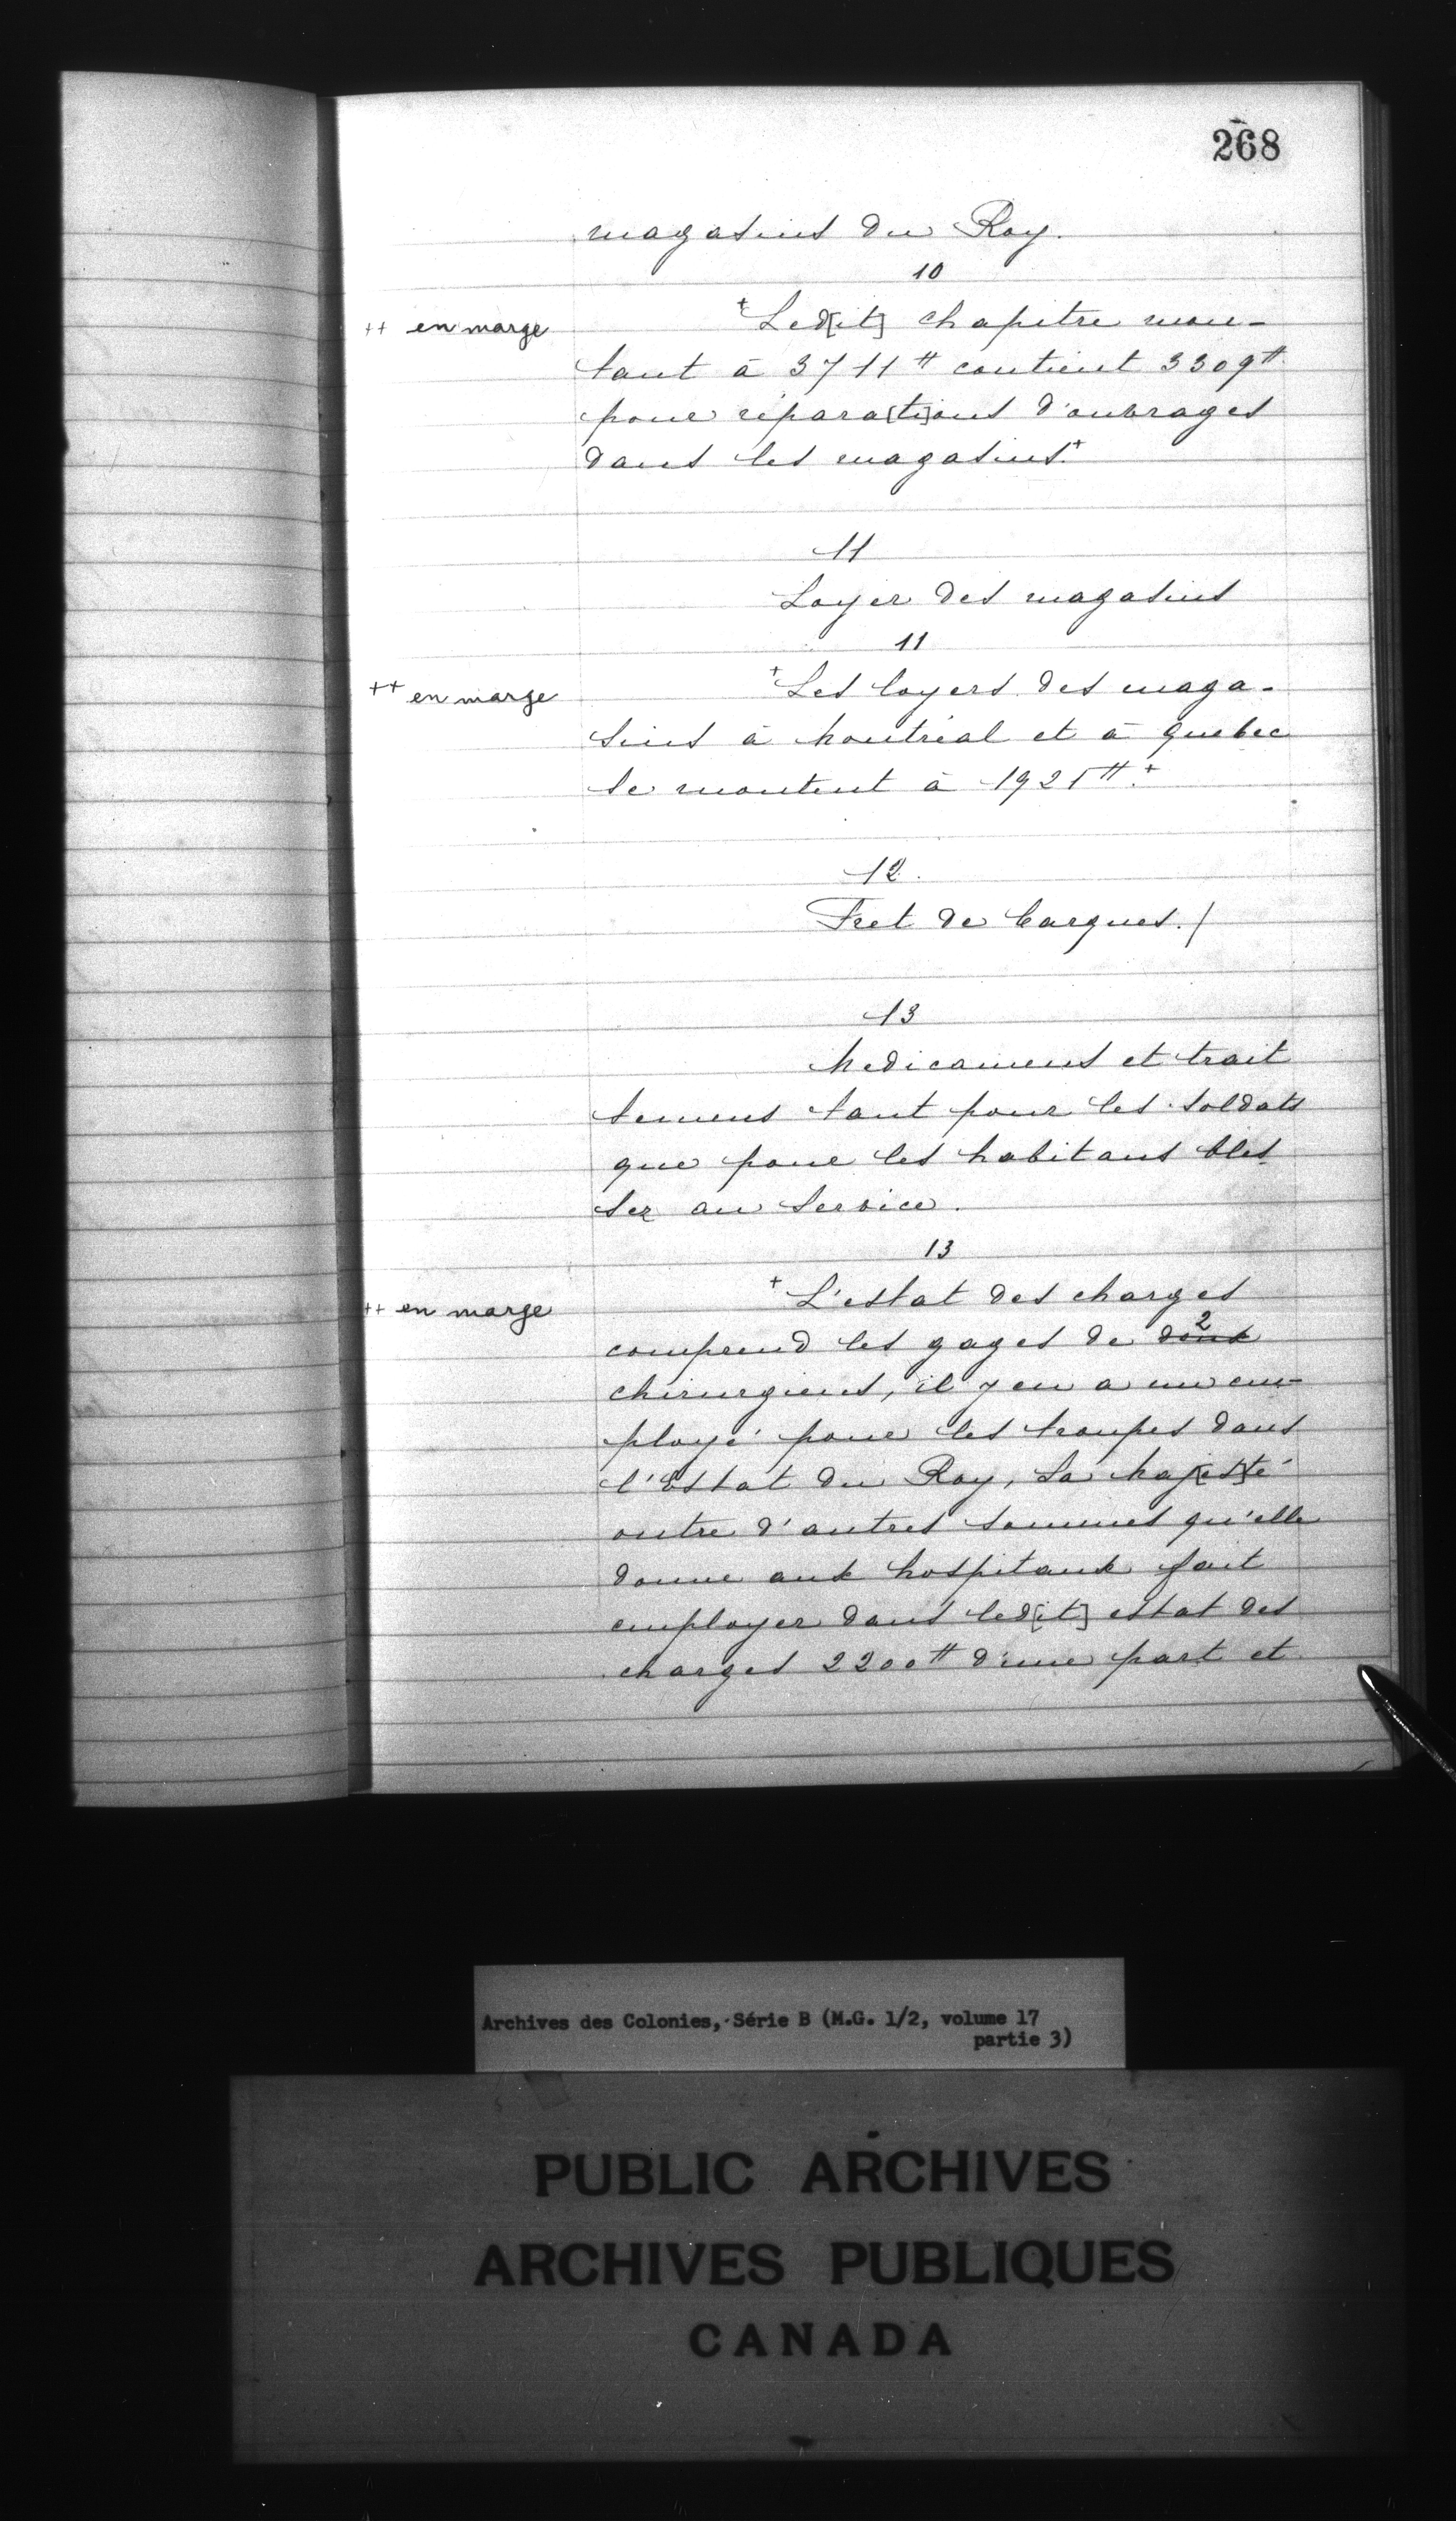 268
magasins du Roy.
10
++ en marge
+Led[it] chapitre mon-
tant à 3711tt contient 3309tt
pour répara[ti]ons d'ouvrages
dans les magasins.+
11
Loyer des magasins
11
++ en marge
+Les loyers des maga-
sins à Montréal et à Quebec
se montent à 1925tt.+
12.
Fret de Barques./
13
Medicamens et trait
temens tant pour les soldats
que pour les habitans bles
sez au Service.
13
++ en marge
+L'estat des charges
comprend les gages de 2
chirurgiens, il y en a un em-
ployé pour les troupes dans
l'Estat du Roy, Sa Maj[es]té
outre d'autres sommes qu'elle
donne aux hospitaux fait
employer dans led[it] estat des
charges 2200tt d'une part et
Archives des Colonies, Série B (M.G. 1/2, volume 17
partie 3)
PUBLIC ARCHIVES
ARCHIVES PUBLIQUES
CANADA